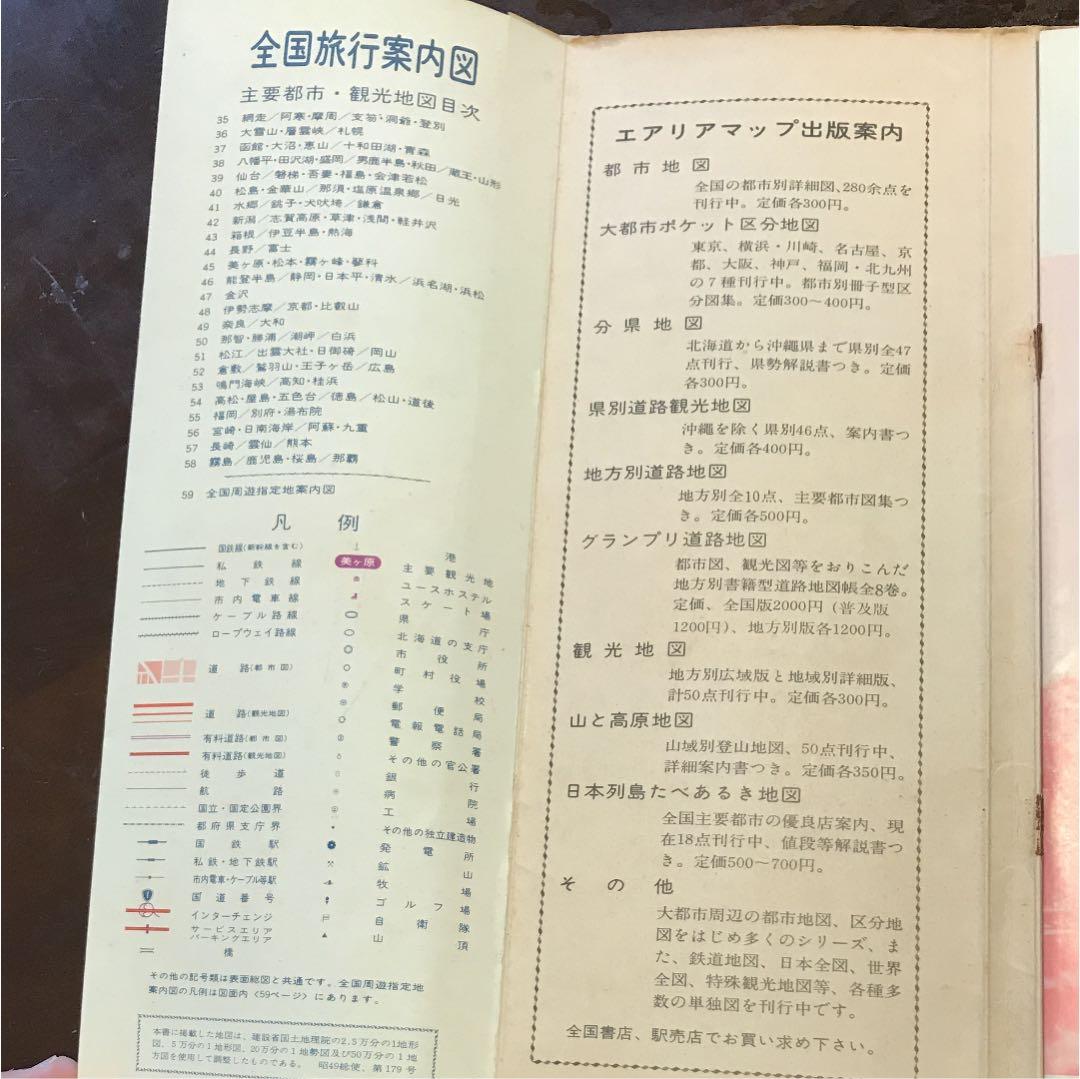 全国旅行案内図
主要都市・観光地図目次
35 網走／阿寒・摩周／支笏・洞爺・登別
36 大雪山・層雲峡／札幌
37 函館・大沼・恵山／十和田湖・青森
38 八幡平・田沢湖・盛岡／男鹿半島・秋田／蔵王・山形
39 仙台／磐梯・吾妻・福島・会津若松
40 松島・金華山／那須・塩原温泉郷／日光
41 水郷／銚子・犬吠埼／鎌倉
42 新潟／志賀高原・草津・浅間・軽井沢
43 箱根／伊豆半島・熱海
44 長野／富士
45 美ヶ原・松本・霧ヶ峰・蓼科
46 能登半島／静岡・日本平・清水／浜名湖・浜松
47 金沢
48 伊勢志摩／京都・比叡山
49 奈良／大和
50 那智・勝浦／潮岬／白浜
51 松江／出雲大社・日御碕／岡山
52 倉敷／鷲羽山・王子ヶ岳／広島
53 鳴門海峡／高知・桂浜
54 高松・屋島・五色台／徳島／松山・道後
55 福岡／別府・湯布院
56 宮崎・日南海岸／阿蘇・九重
57 長崎／雲仙／熊本
58 霧島／鹿児島・桜島／那覇
59 全国周遊指定地案内図
凡例
国鉄線(新幹線を含む)
私鉄線
地下鉄線
市内電車線
ケーブル路線
ロープウェイ路線
道路(都市図)
道路(観光地図)
有料道路(都市図)
有料道路(観光地図)
徒歩道
航路
国立・国定公園界
都府県支庁界
国鉄駅
私鉄・地下鉄駅
市内電車・ケーブル等駅
国道番号
インターチェンジ
サービスエリア
パーキングエリア
橋
港
美ヶ原 主要観光地
ユースホステル
スケート場
県庁
北海道の支庁
市役所
町村役場
学校
郵便局
電報電話局
警察署
その他の官公署
銀行
病院
工場
その他の独立建造物
発電所
鉱山
牧場
ゴルフ場
自衛隊
山頂
その他の記号類は表面総図と共通です。全国周遊指定地
案内図の凡例は図面内〈59ページ〉にあります。
本書に掲載した地図は、建設省国土地理院の2.5万分の1地形
図、5万分の1地形図、20万分の1地勢図及び50万分の1地
方図を使用して調整したものである。 昭49総使、第179号
エアリアマップ出版案内
都市地図
全国の都市別詳細図、280余点を
刊行中。定価各300円。
大都市ポケット区分地図
東京、横浜・川崎、名古屋、京
都、大阪、神戸、福岡・北九州
の7種刊行中。都市別冊子型区
分図集。定価300〜400円。
分県地図
北海道から沖縄県まで県別全47
点刊行、県勢解説書つき。定価
各300円。
県別道路観光地図
沖縄を除く県別46点、案内書つ
き。定価各400円。
地方別道路地図
地方別全10点、主要都市図集つ
き。定価各500円。
グランプリ道路地図
都市図、観光図等をおりこんだ
地方別書籍型道路地図帳全8巻。
定価、全国版2000円（普及版
1200円）、地方別版各1200円。
観光地図
地方別広域版と地域別詳細版、
計50点刊行中。定価各300円。
山と高原地図
山域別登山地図、50点刊行中、
詳細案内書つき。定価各350円。
日本列島たべあるき地図
全国主要都市の優良店案内、現
在18点刊行中、値段等解説書つ
き。定価500〜700円。
その他
大都市周辺の都市地図、区分地
図をはじめ多くのシリーズ、ま
た、鉄道地図、日本全図、世界
全図、特殊観光地図等、各種多
数の単独図を刊行中です。
全国書店、駅売店でお買い求め下さい。